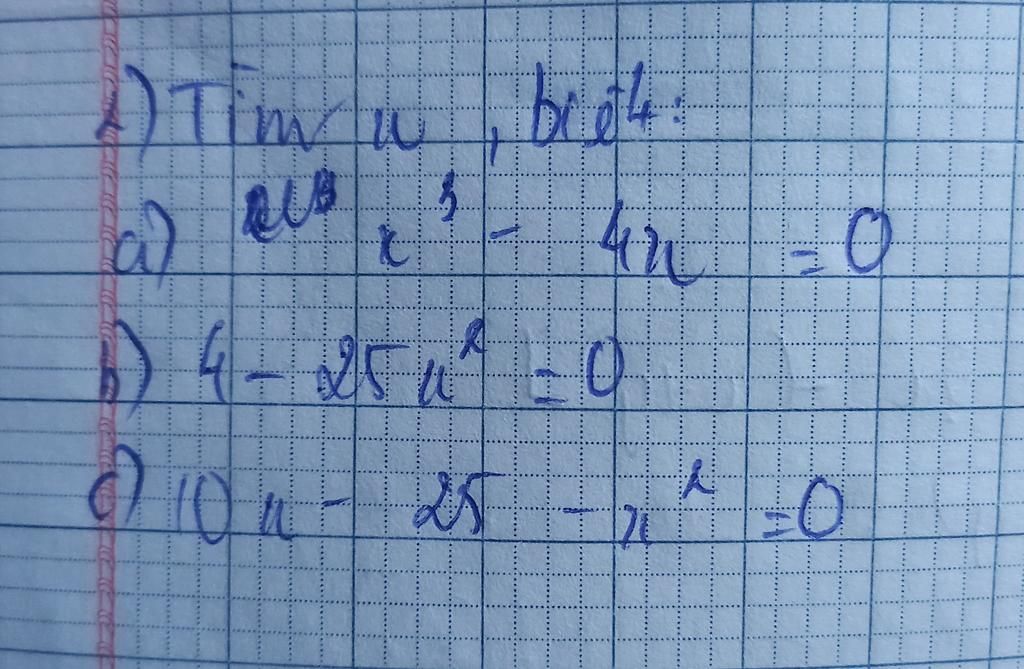 1) Tìm x, biết:
a) x³ - 4x = 0
b) 4 - 25x² = 0
c) 10x - 25 - x² = 0